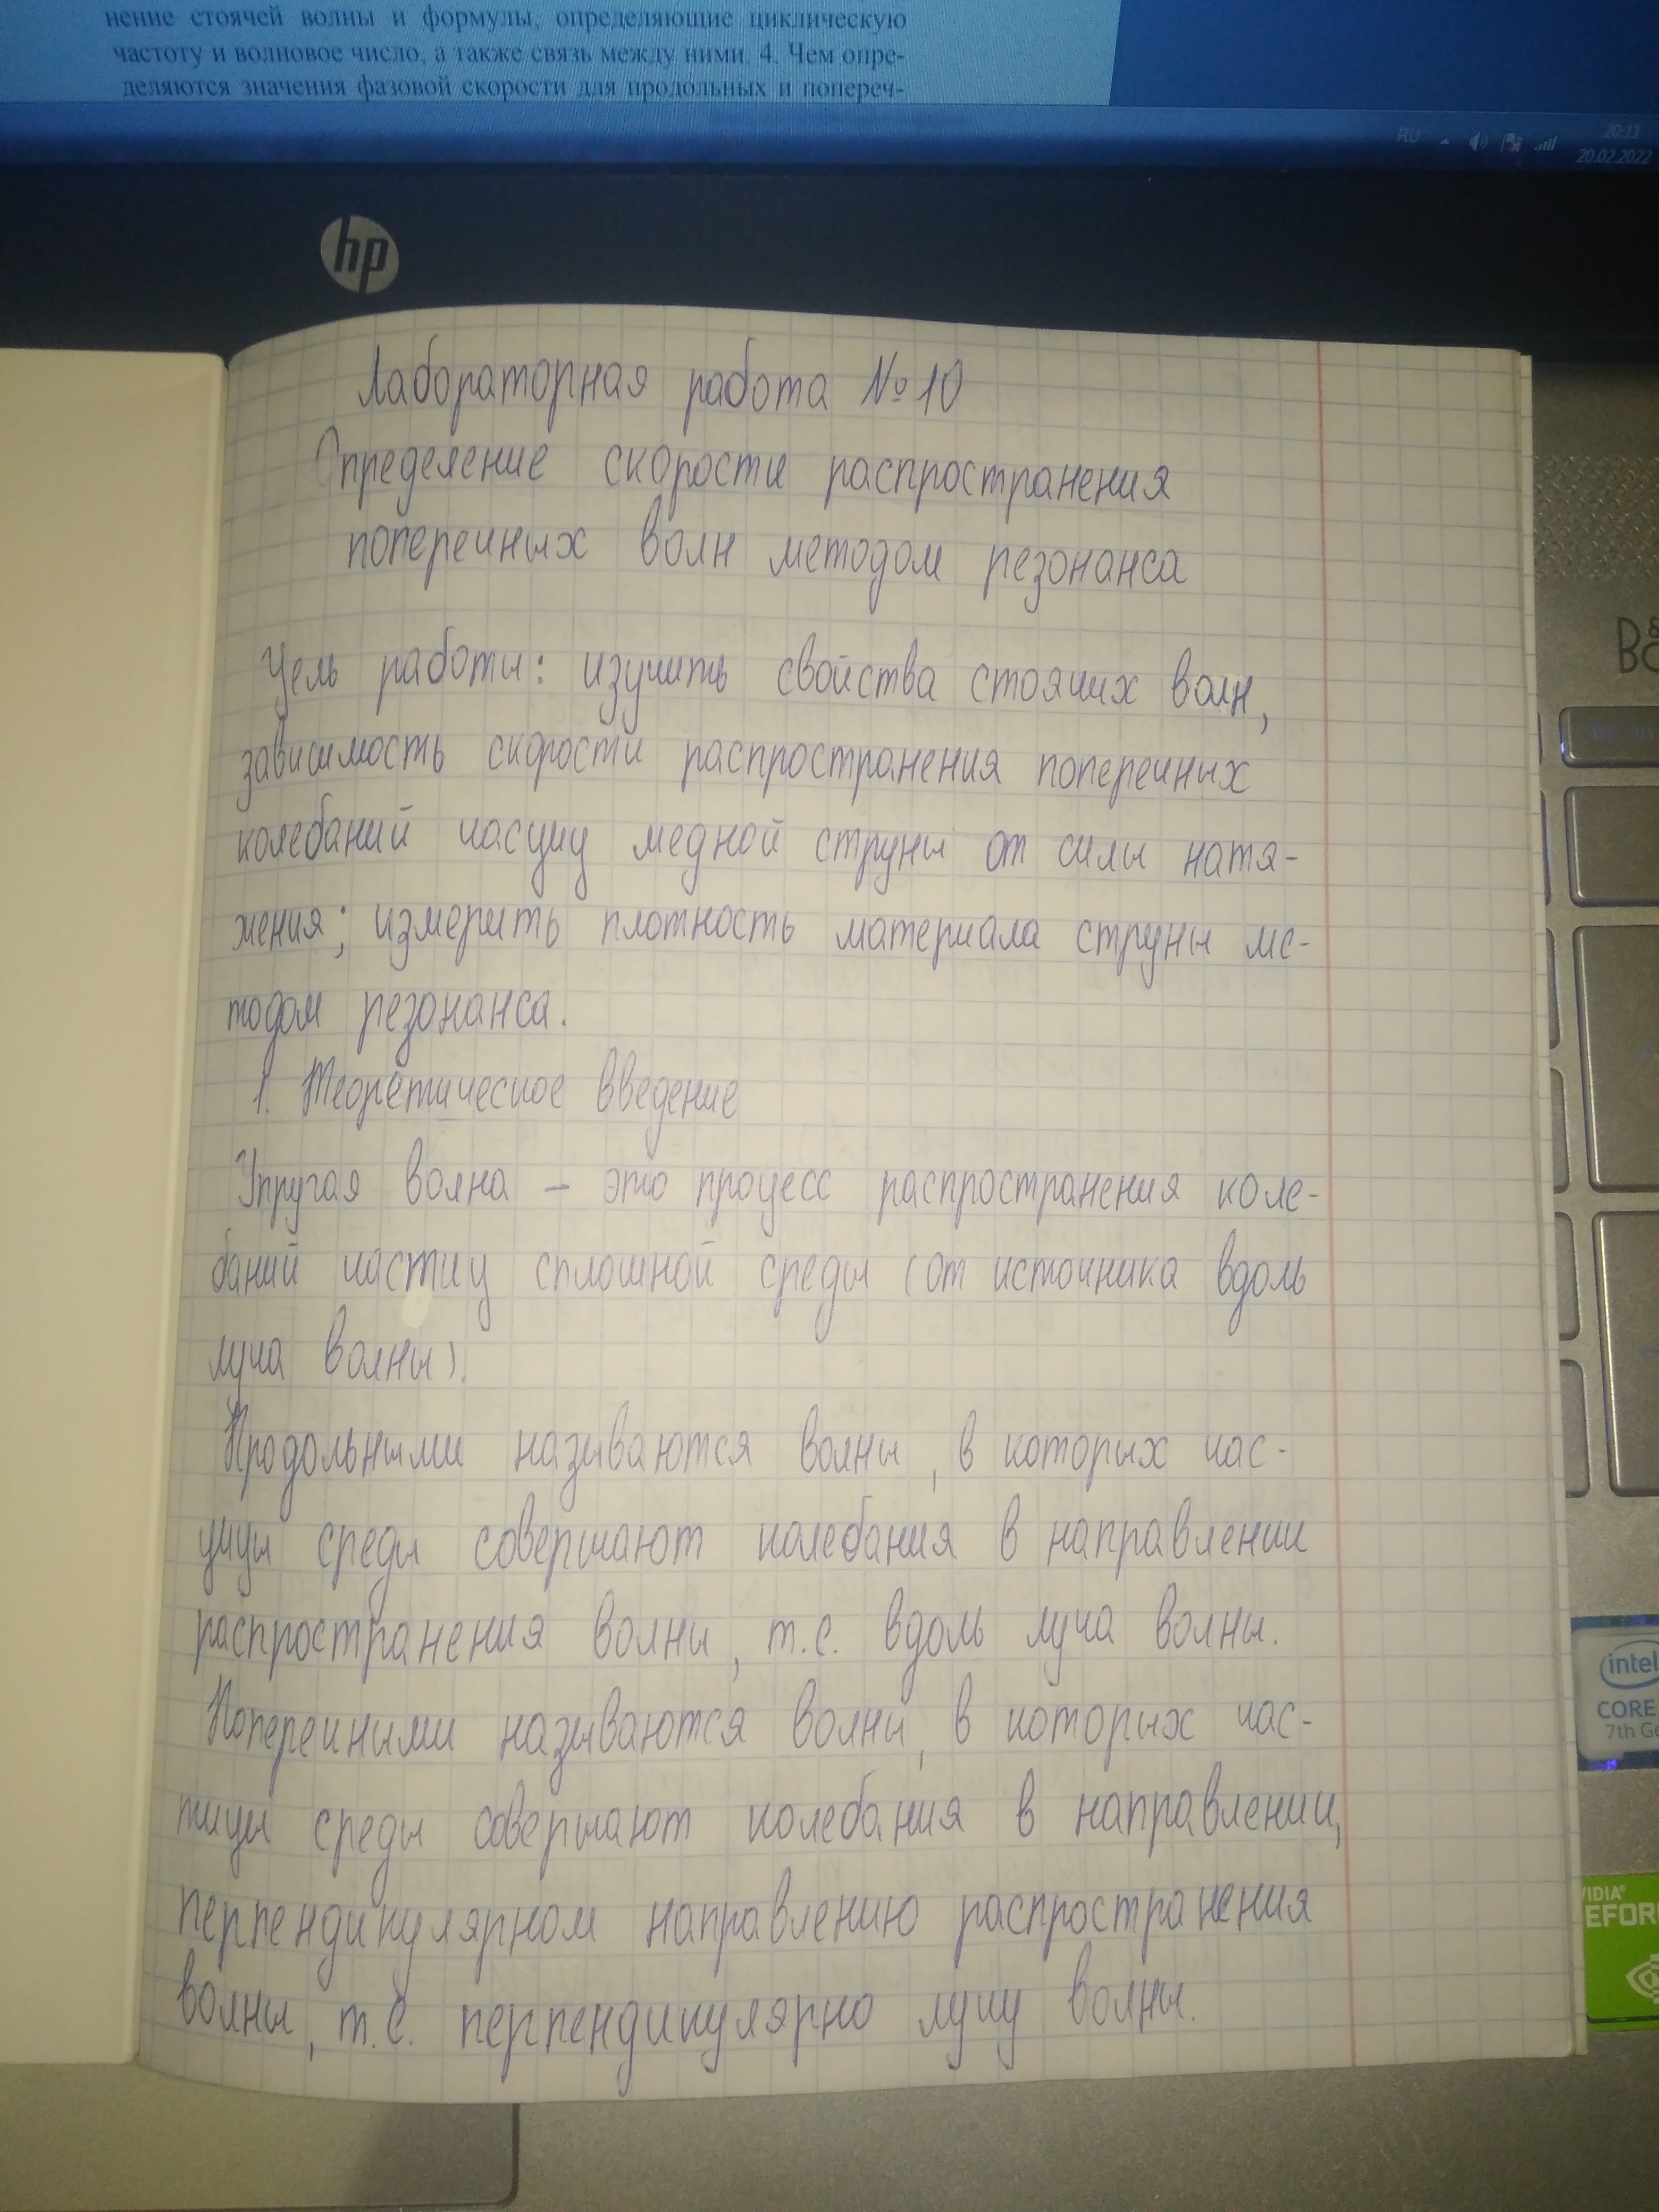 нение стоячей волны и формулы, определяющие циклическую
частоту и волновое число, а также связь между ними. 4. Чем опре-
деляются значения фазовой скорости для продольных и попереч-
RU
20:11
20.02.2022
hp
Лабораторная работа №10
Определение скорости распространения
поперечных волн методом резонанса
Цель работы: изучить свойства стоячих волн,
зависимость скорости распространения поперечных
колебаний часциц медной струны от силы натя-
жения; измерить плотность материала струны ме-
тодом резонанса.
1. Теоретическое введение
Упругая волна – это процесс распространения коле-
баний частиц сплошной среды (от источника вдоль
луча волны).
Продольными называются волны, в которых час-
цицы среды совершают колебания в направлении
распространения волны, т.е. вдоль луча волны.
Поперечными называются волны, в которых час-
тицы среды совершают колебания в направлении,
перпендикулярном направлению распространения
волны, т.е. перпендикулярно лучу волны.
intel
CORE
7th Ge
VIDIA
EFOR